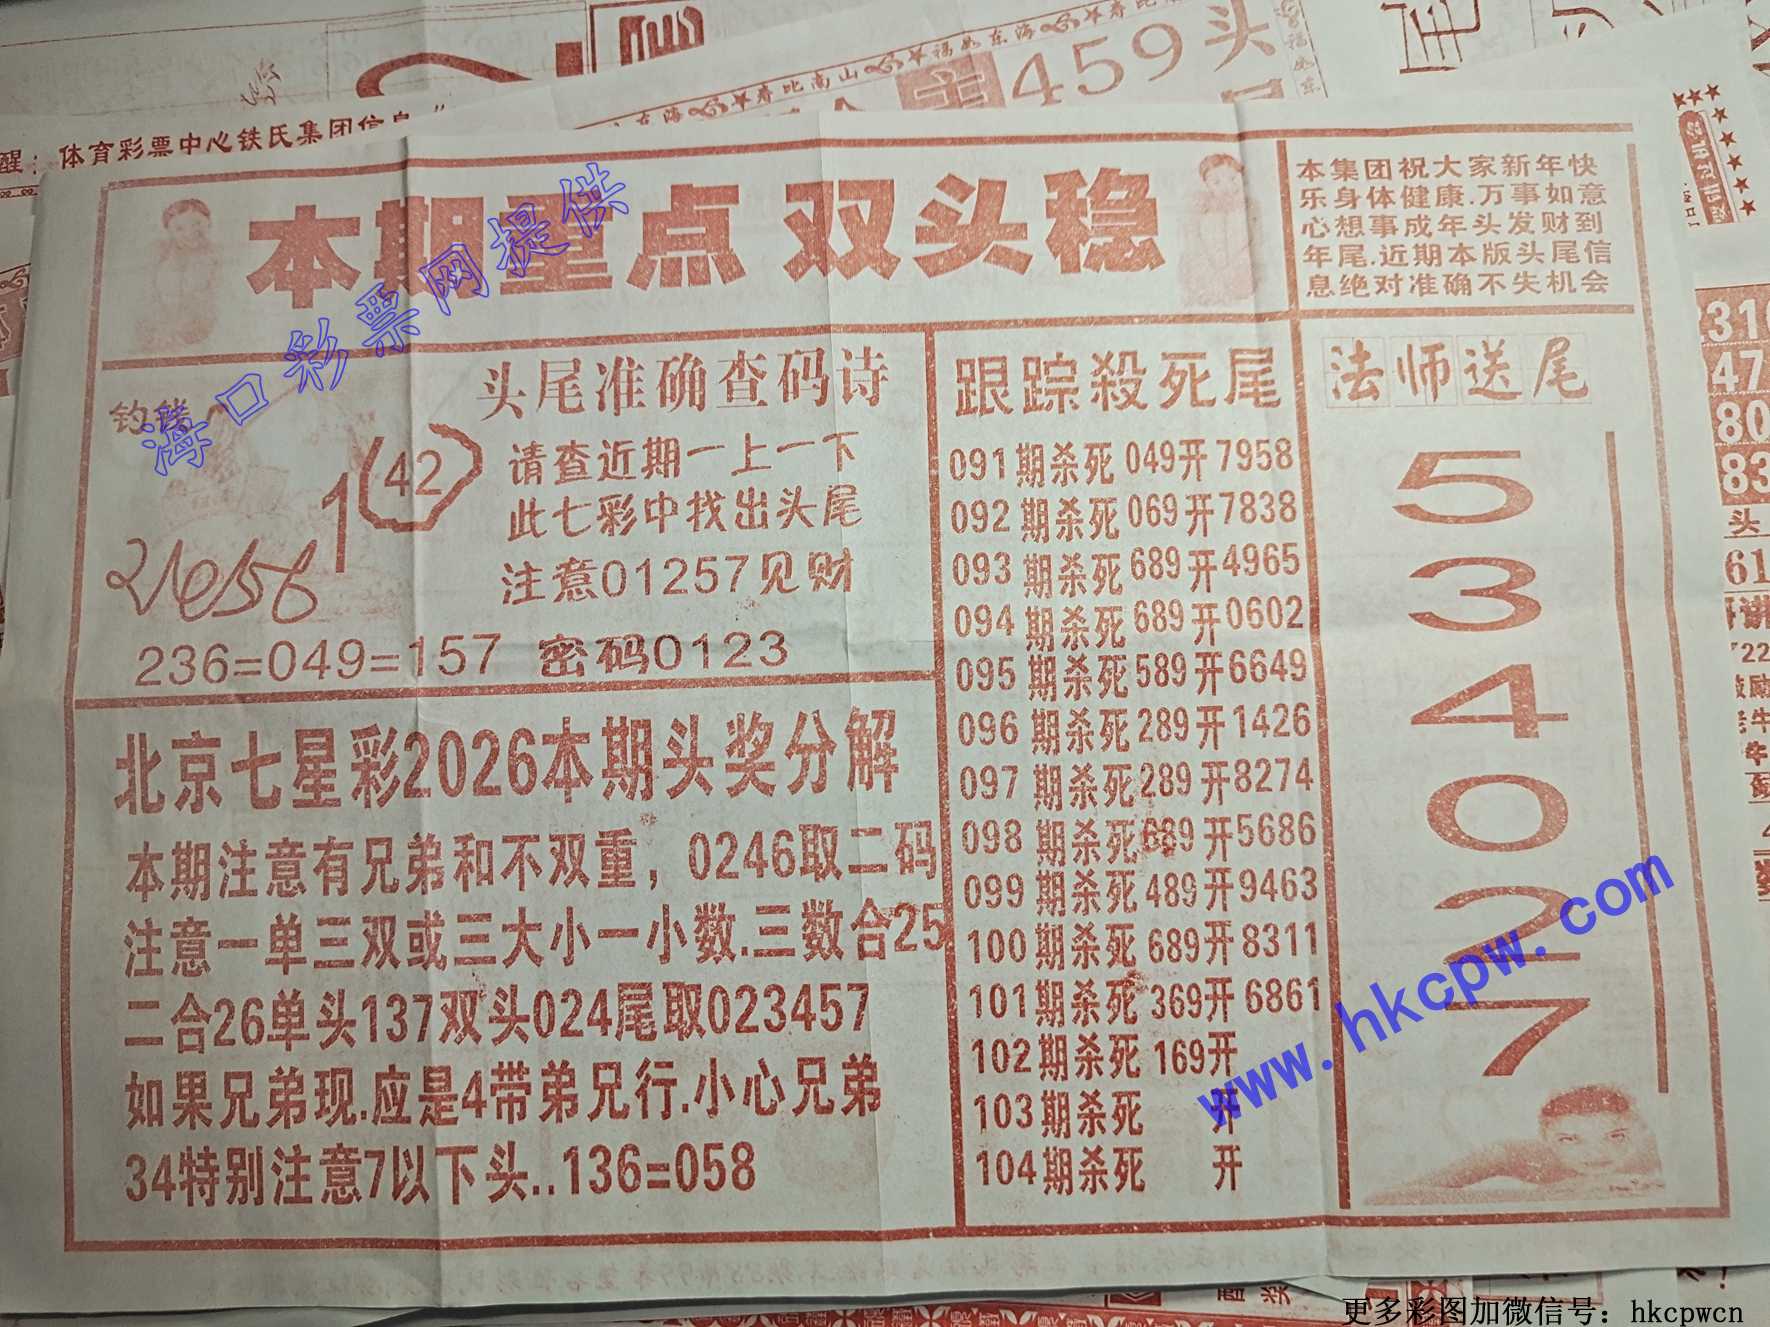 459头
春比高山
福如东海
醒：体育彩票中心铁氏集团信息
本期重点 双头稳
本集团祝大家新年快
乐身体健康.万事如意
心想事成年头发财到
年尾.近期本版头尾信
息绝对准确不失机会
海口彩票网提供
头尾准确查码诗
请查近期一上一下
此七彩中找出头尾
注意01257见财
1
42
236=049=157 密码0123
北京七星彩2026本期头奖分解
本期注意有兄弟和不双重，0246取二码
注意一单三双或三大小一小数.三数合25
二合26单头137双头024尾取023457
如果兄弟现.应是4带弟兄行.小心兄弟
34特别注意7以下头..136=058
跟踪殺死尾
091期杀死049开7958
092期杀死069开7838
093期杀死689开4965
094期杀死689开0602
095期杀死589开6649
096期杀死289开1426
097期杀死289开8274
098期杀死689开5686
099期杀死489开9463
100期杀死689开8311
101期杀死369开6861
102期杀死169开
103期杀死 开
104期杀死 开
法师送尾
5
3
4
0
2
7
www.hkcpw.com
310
47
80
83
头
61
更多彩图加微信号：hkcpwcn